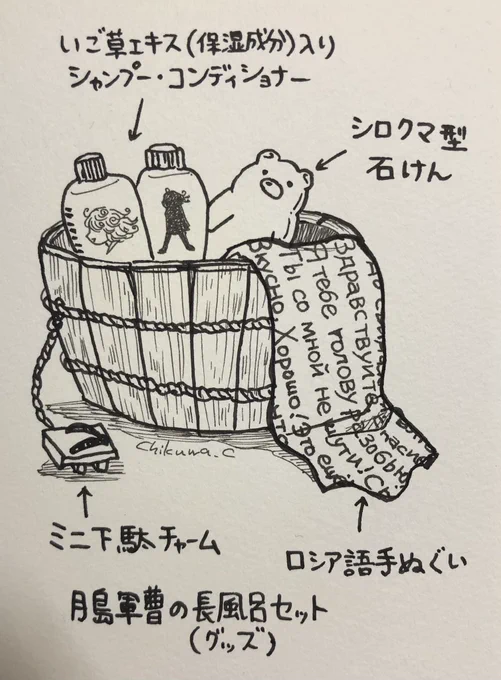 いご草エキス(保湿成分)入り
シャンプー・コンディショナー
シロクマ型
石けん
Здравствуйте
Я тебе голову разобью!
Ты со мной не шути!
Вкусно! Хорошо! Это ещё
что
Chikuwa.C
ミニ下駄チャーム
ロシア語手ぬぐい
月島軍曹の長風呂セット
(グッズ)